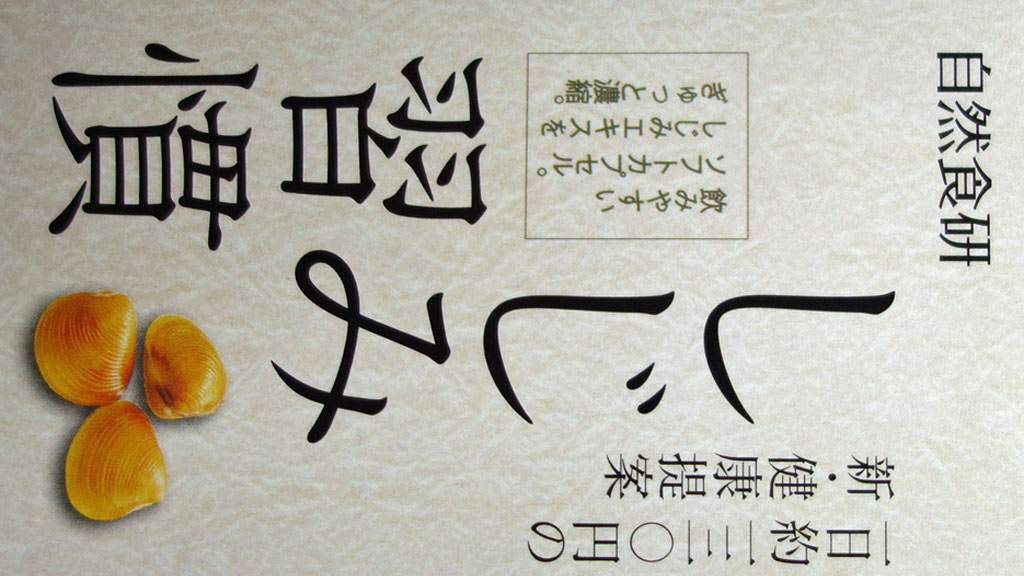 自然食研
一日約一三〇円の
新・健康提案
しじみ
習慣
飲みやすい
ソフトカプセル。
しじみエキスを
ぎゅっと濃縮。